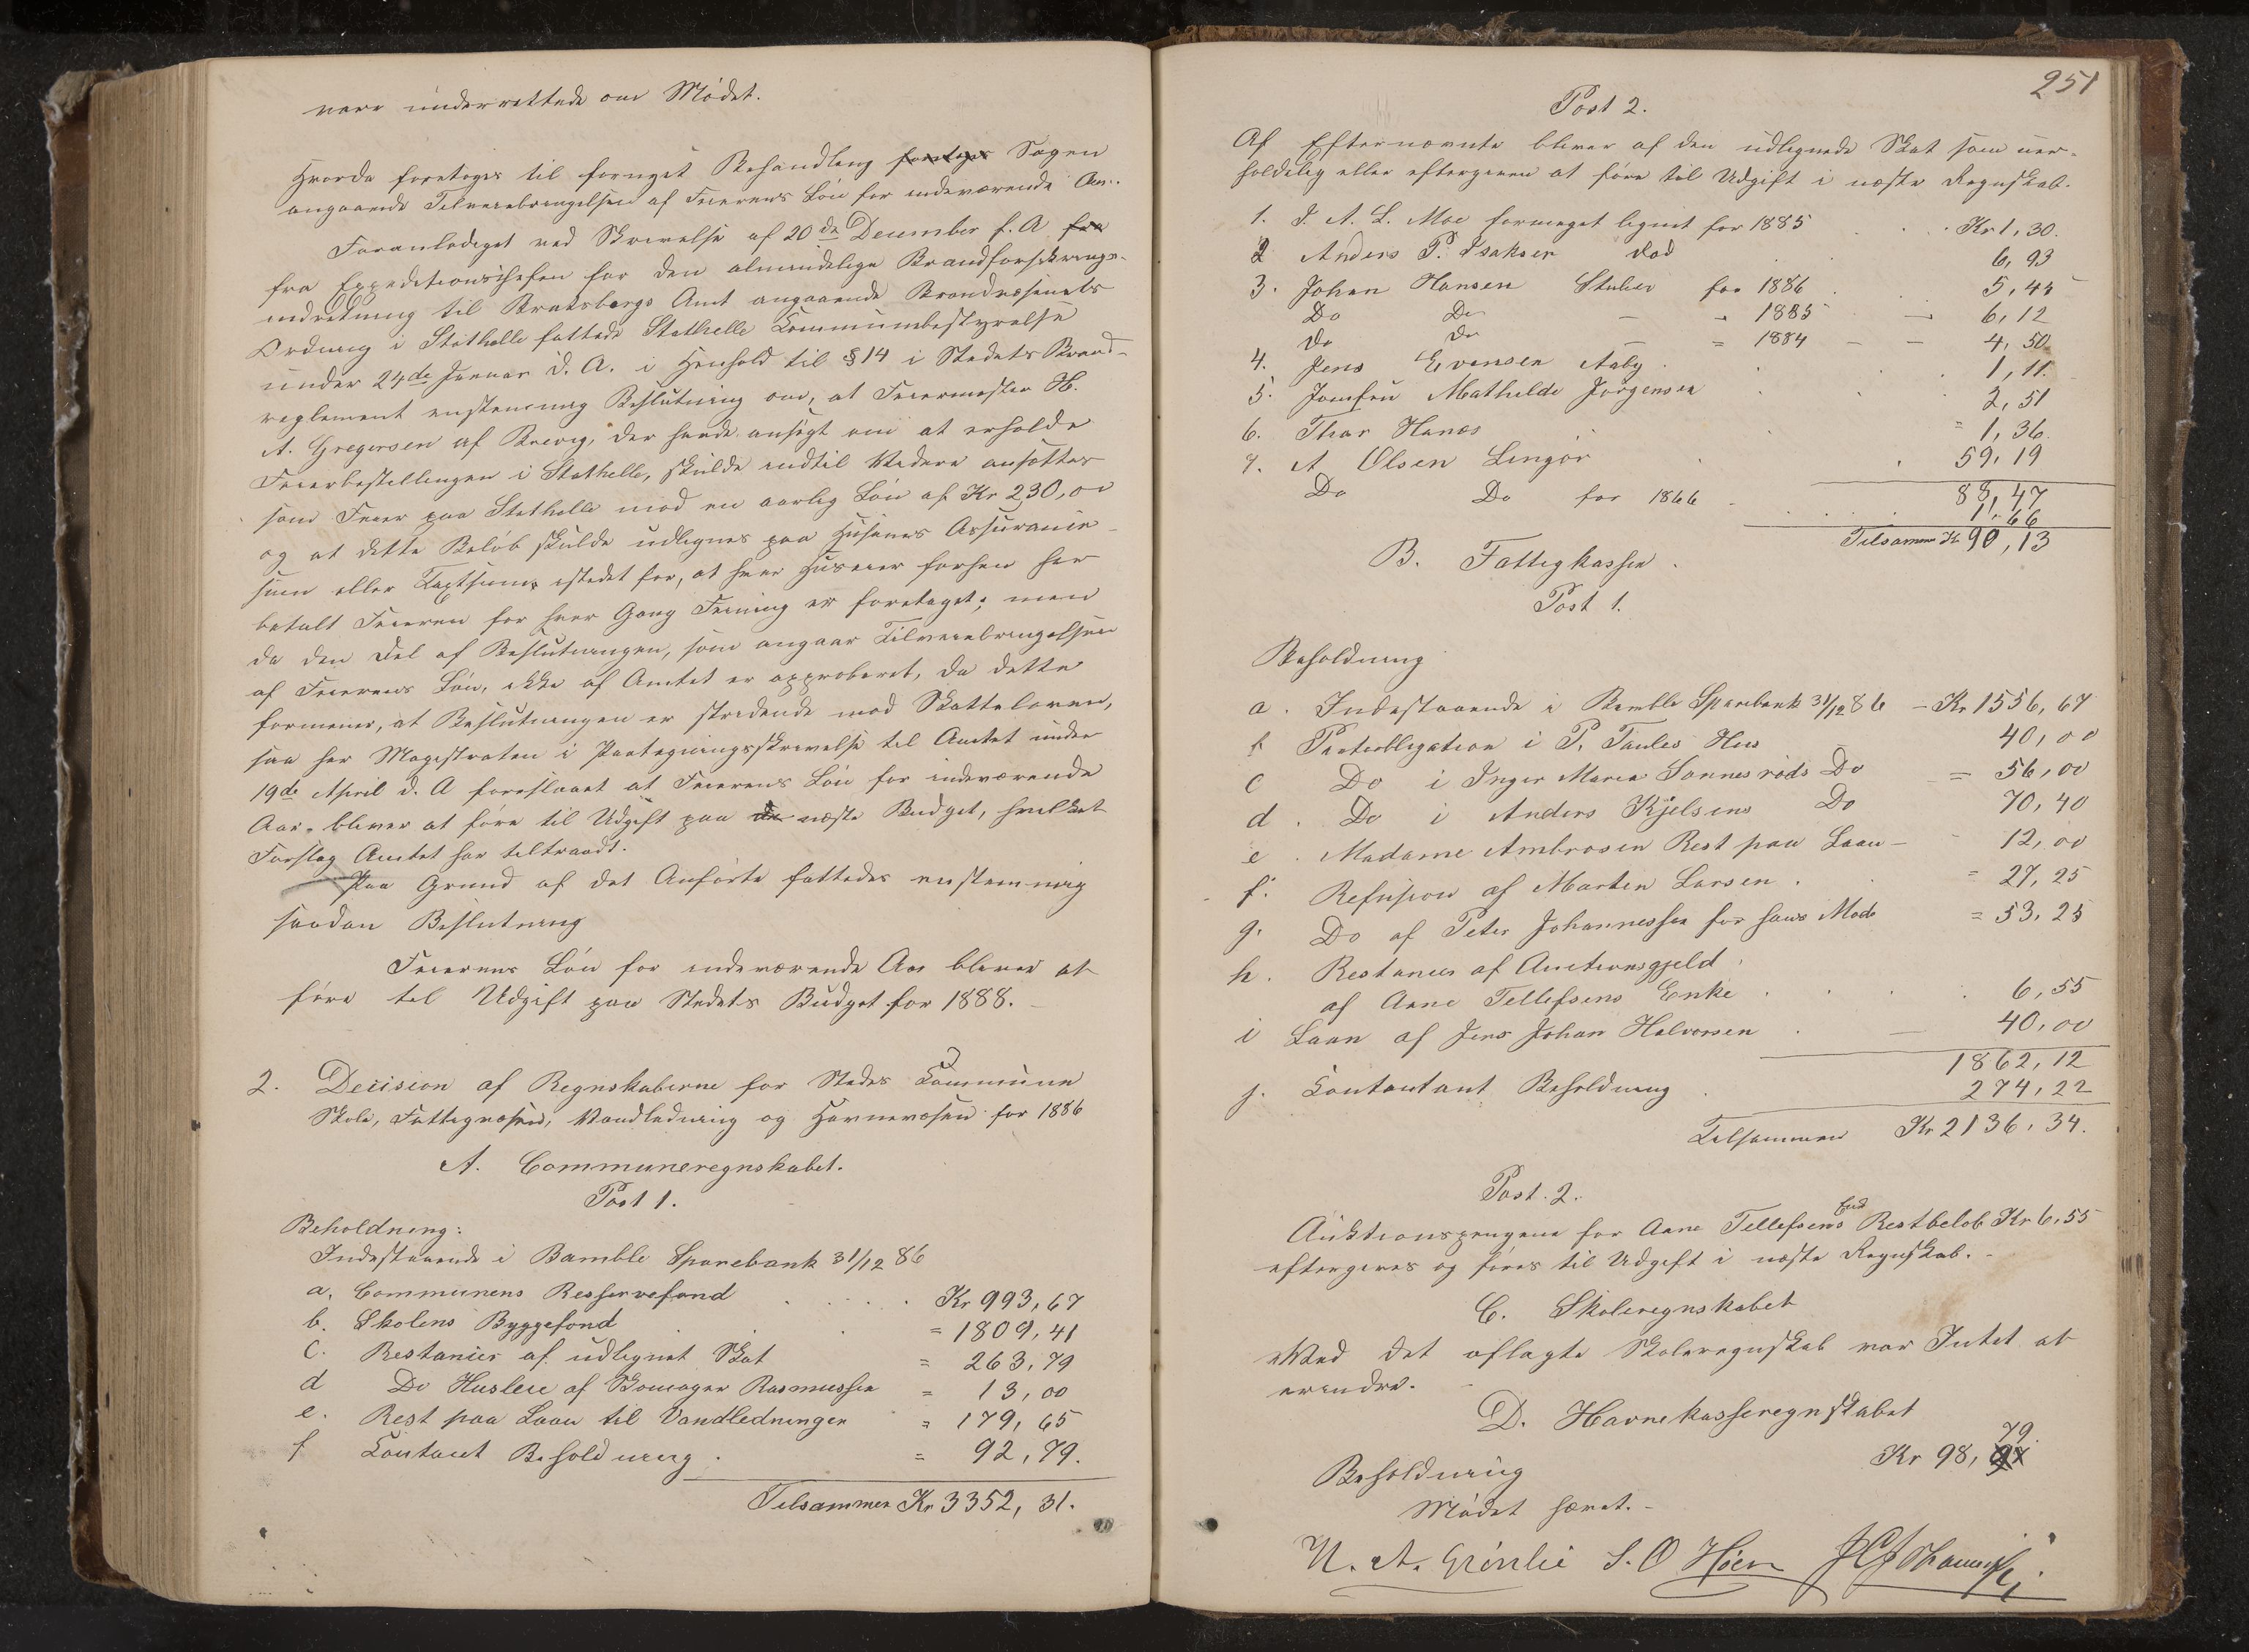 vare underrettede om Mødet.
Hvorda foretoges til fornyet Behandling foretoges Sagen
angaaende Tilveiebringelsen af Feierens Løn for indeværende Aar.
Foranlediget ved Skrivelse af 20de December f. A. fra
fra Expeditionschefen for den almindelige Brandforsikrings-
indretning til Bratsbergs Amt angaaende Brandvæsenets
Ordning i Stathelle fattede Stathelle Communebestyrelse
under 24de Januar d. A. i Henhold til § 14 i Stedets Brand-
reglement enstemmig Beslutning om, at Feiermester H.
A. Gregersen af Brevig, der havde ansøgt om at erholde
Feierbestillingen i Stathelle, skulde indtil Videre ansættes
som Feier paa Stathelle mod en aarlig Løn af Kr 230,00
og at dette Beløb skulde udlignes paa Husenes Assurance-
sum eller Taxtsum, istedet for, at hver Huseier forhen har
betalt Feieren for hver Gang Feining er foretaget; men
da den Del af Beslutningen, som angaar Tilveiebringelsen
af Feierens Løn, ikke af Amtet er approberet, da dette
formener, at Beslutningen er stridende mod Skatteloven,
saa har Magistraten i Paategningsskrivelse til Amtet under
19de April d. A foreslaaet at Feierens Løn for indeværende
Aar bliver at føre til Udgift paa de næste Budget, hvilket
Forslag Amtet har tiltraadt.
Paa Grund af det Anførte fattedes enstemmig
saadan Beslutning
Feierens Løn for indeværende Aar bliver at
føre til Udgift paa Stedets Budget for 1888.
2. Decision af Regnskaberne for Stedes Commune
Skole, Fattigvæsen, Vandledning og Havnevæsen for 1886
A. Communeregnskabet.
Post 1.
Beholdning:
Indestaaende i Bamble Sparebank 31/12 86
a. Communens Resservefond . . . . Kr 993,67
b. Skolens Byggefond . . = 1809,41
c. Restancer af udlignet Skat = 263,79
d Do Husleie af Skomager Rasmussen = 13,00
e. Rest paa Laan til Vandledningen = 179,65
f Contant Beholdning . = 92,79.
Tilsammen Kr 3352, 31.
251
Post 2.
Af Efternævnte bliver af den udlignede Skat som uer-
holdelig eller eftergiven at føre til Udgift i næste Regnskab.
1. J. A. L. Moe formeget lignet for 1885 . . . Kr 1,30.
2 Anders P. Isaksen død 6,93
3. Johan Hansen Stuber for 1886 . 5,45
Do Do — - 1885 — 6,12
Do Do — = 1884 — — 4,50
4. Jens Evensen Aaby . . . 1,11.
5. Jomfru Mathilde Jørgensen . . . 2,51
6. Thor Hanes . = 1,36.
7. A Olsen Lingør . . 59,19
88,47
Do Do for 1866 . . . . 1,66
Tilsammen Kr 90,13
B. Fattigkassen.
Post 1.
Beholdning
a. Indestaaende i Bamble Sparebank 31/12 86 — Kr 1556,67
b Panteobligation i P. Taules Hus 40,00
c Do i Inger Maria Sannesrøds Do = 56,00
d. Do i Anders Kjelsens Do 70,40
e. Madame Ambrosen Rest paa Laan — 12,00
f. Refusion af Martin Larsen . = 27,25
g. Do af Peter Johannessen for hans Moder = 53,25
h. Restancer af Auctionsgjeld
af Aane Tellefsens Enke . . . . 6,55
i Laan af Jens Johan Halvorsen . — 40,00
1862,12
j. Contantant Beholdning . 274,22
Tilsammen Kr 2136,34.
Post. 2.
Auktionspengene for Aane Tellefsens Enke Restbeløb Kr 6,55
eftergives og føres til Udgift i næste Regnskab.-
C. Skoleregnskabet
Ved det aflagte Skoleregnskab var Intet at
erindre. -
D. Havnekasseregnskabet
Beholdning Kr 98, 79.
Mødet hævet.-
N. A. Grinlie S. O Høen